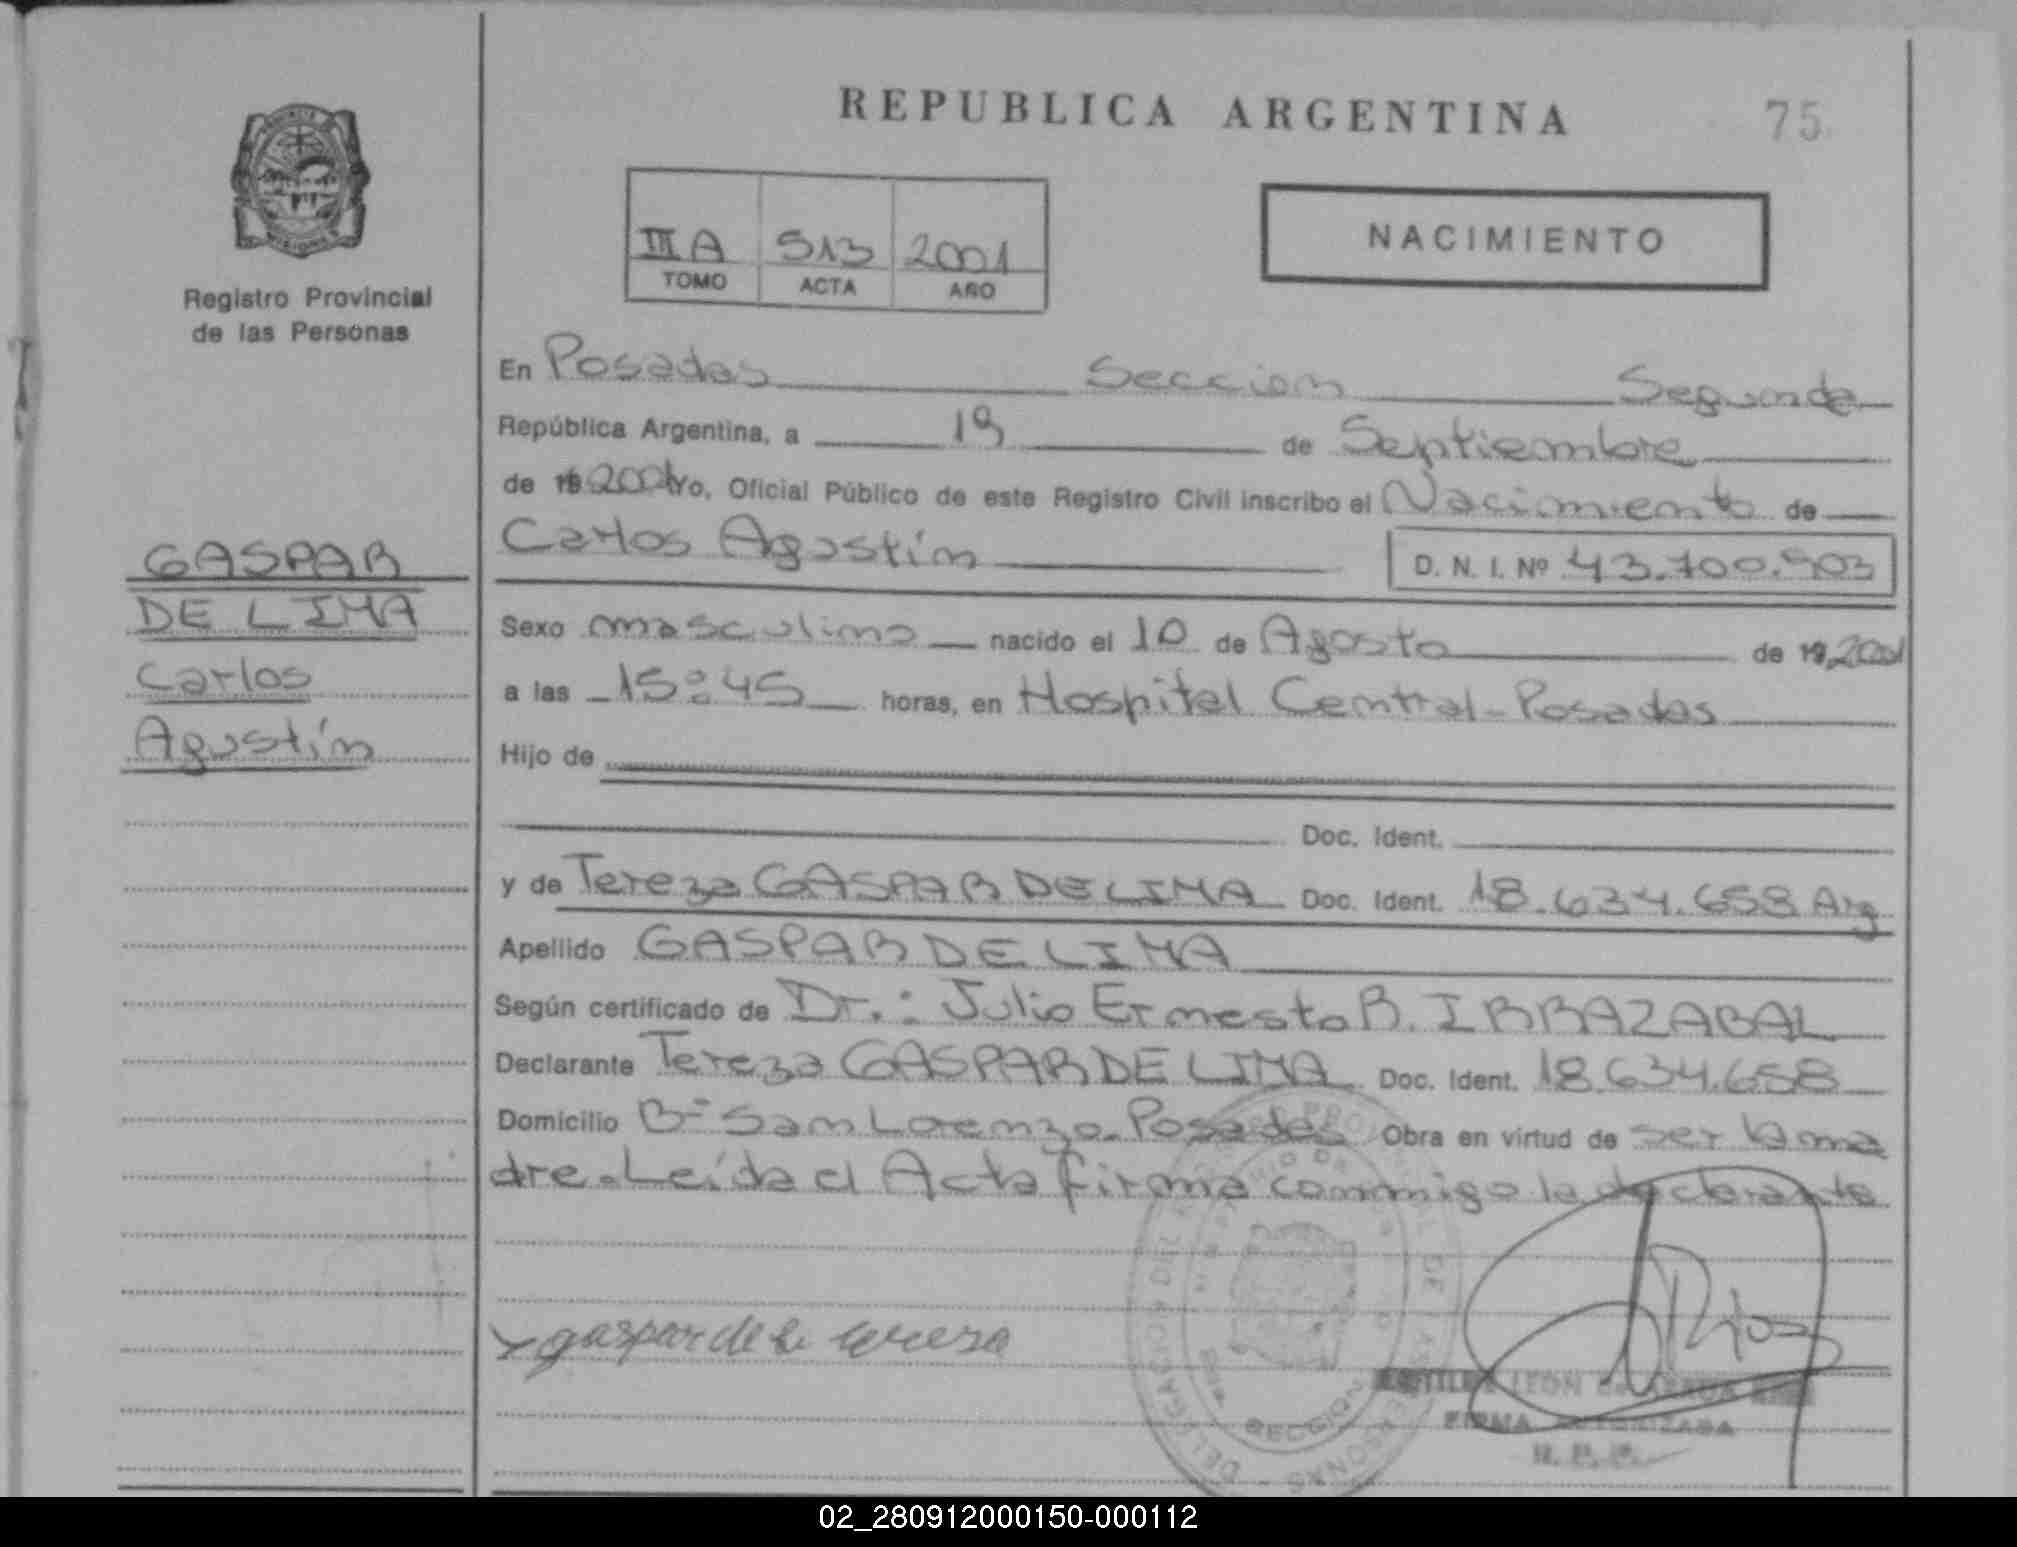 REPUBLICA ARGENTINA
75
Registro Provincial
de las Personas
III A 513 2001
TOMO ACTA AÑO
NACIMIENTO
En Posadas Seccion Segunda
República Argentina, a 19 de Septiembre
de 19 2001 yo, Oficial Público de este Registro Civil inscribo el Nacimiento de
Carlos Agustín D. N. I. Nº 43.700.903
GASPAR
DE LIMA
Carlos
Agustín
Sexo masculino nacido el 10 de Agosto de 19 2001
a las 15:45 horas, en Hospital Central - Posadas
Hijo de
Doc. Ident.
y de Tereza GASPAR DE LIMA Doc. Ident. 18.634.658 Arg
Apellido GASPAR DE LIMA
Según certificado de Dr.: Julio Ernesto R. IRRAZABAL
Declarante Tereza GASPAR DE LIMA Doc. Ident. 18.634.658
Domicilio Bº San Lorenzo - Posadas Obra en virtud de ser la ma
dre. Leída el Acta firma conmigo la declarante
gaspar de li tereza
SECCION
FIRMA AUTORIZADA
R. P. P.
02_280912000150-000112